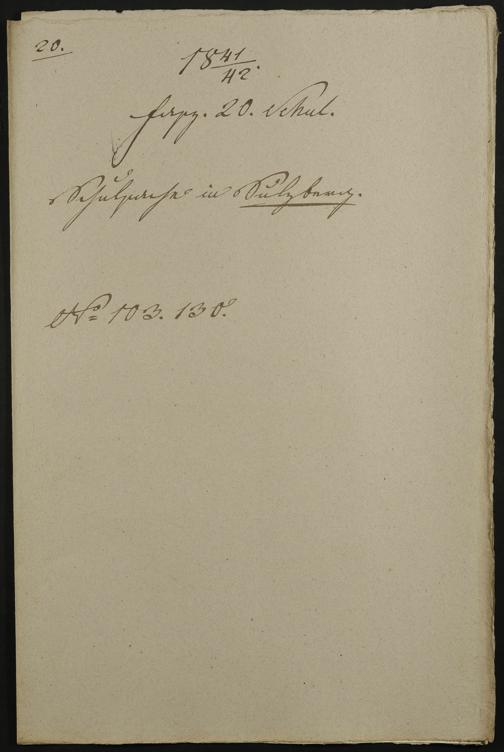 20.
18 41/42.
fasz. 20. Schul.
Schulsache in Sulzberg.
No 103. 130.